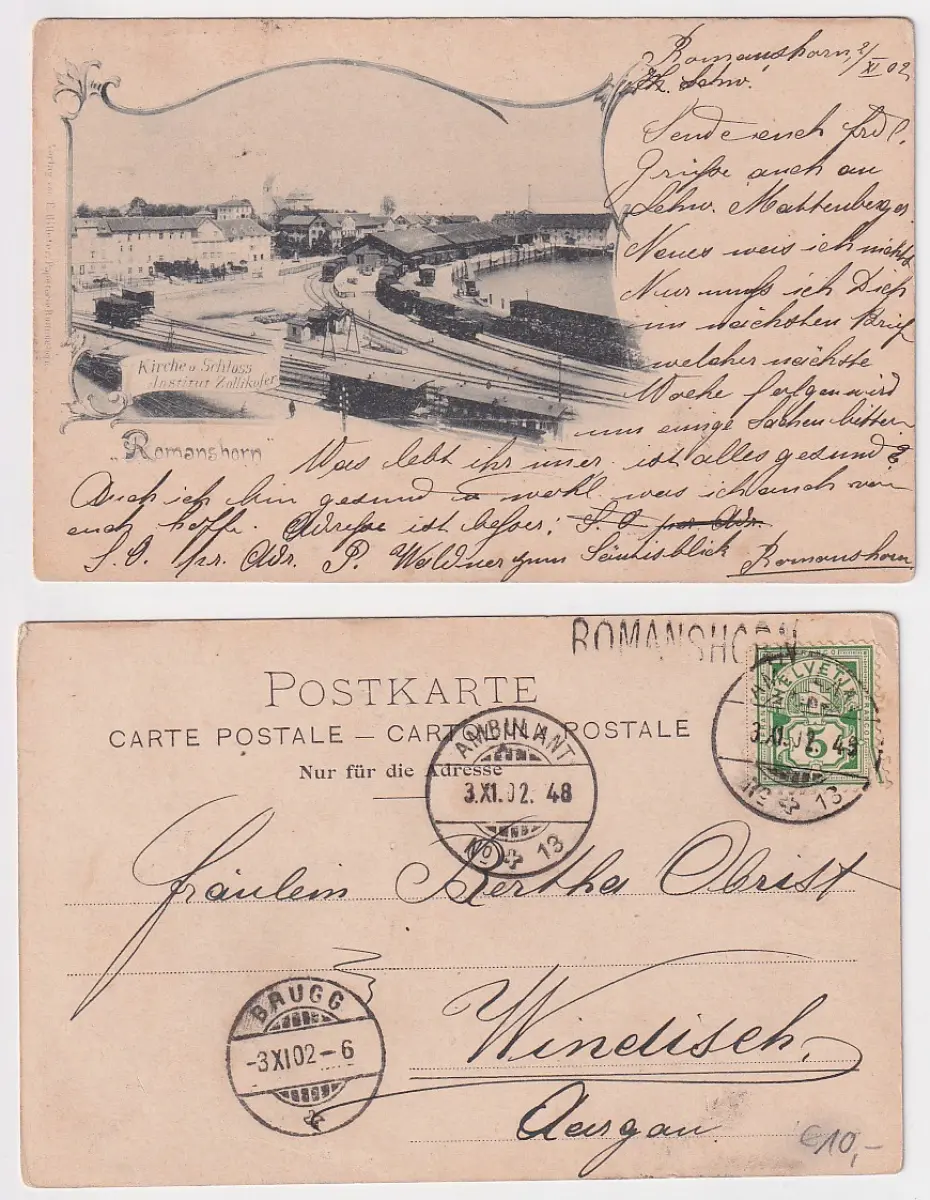 Romanshorn, 2/XI 02
Lb. Schw.
Sende euch frdl.
Grüsse auch an
Schw. Mattenberger.
Neues weis ich nicht
Nur muss ich Dich
im nächsten Brief
welcher nächste
Woche folgen wird
um einige Sachen bitten
Verlag von
Kirche u. Schloss
Institut Zollikofer
„Romanshorn"
Was lebt ihr immer, ist alles gesund?
Auch ich bin gesund u wohl was ich auch von
euch hoffe. Adresse ist besser: S. O. pr. Adr.
S. O. pr. Adr. P. Waldner zum Säntisblick Romanshorn
ROMANSHORN
POSTKARTE
CARTE POSTALE – CARTOLINA POSTALE
Nur für die Adresse
HELVETIA
5
AMBULANT
3.XI.02. 48
No 13
AMBULANT
3.XI.02. 48
No 13
Fräulein Bertha Obrist
Windisch,
Aargau
BRUGG
-3 XI 02 – 6
€10,-